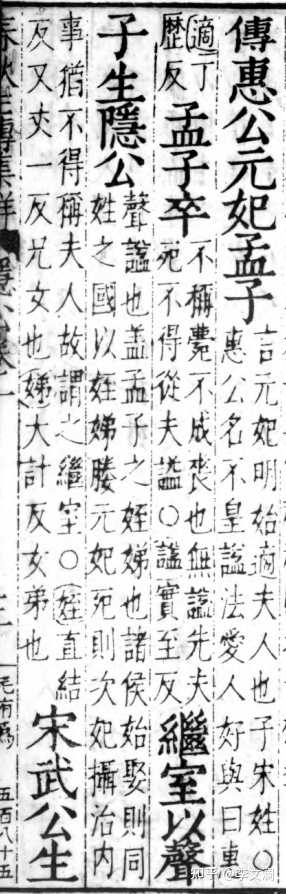 傳惠公元妃孟子
言元妃明始適夫人也子宋姓○
惠公名不皇謚法愛人好與曰惠
適丁
歷反
孟子卒
不稱薨不成喪也無謚先夫
死不得從夫謚○謚實至反
繼室以聲
子生隱公
聲謚也盖孟子之姪娣也諸侯始娶則同
姓之國以姪娣媵元妃死則次妃攝治內
事猶不得稱夫人故謂之繼室○姪直結
反又丈一反兄女也娣大計反女弟也
宋武公生
五百八十五
知乎